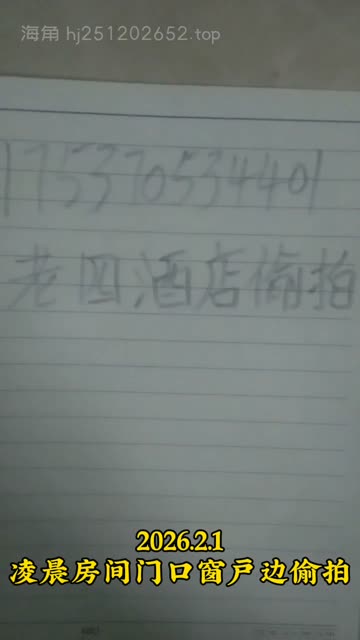 海角 hj251202652.top
175370534401
老四,酒店偷拍
2026.2.1
凌晨房间门口窗户边偷拍